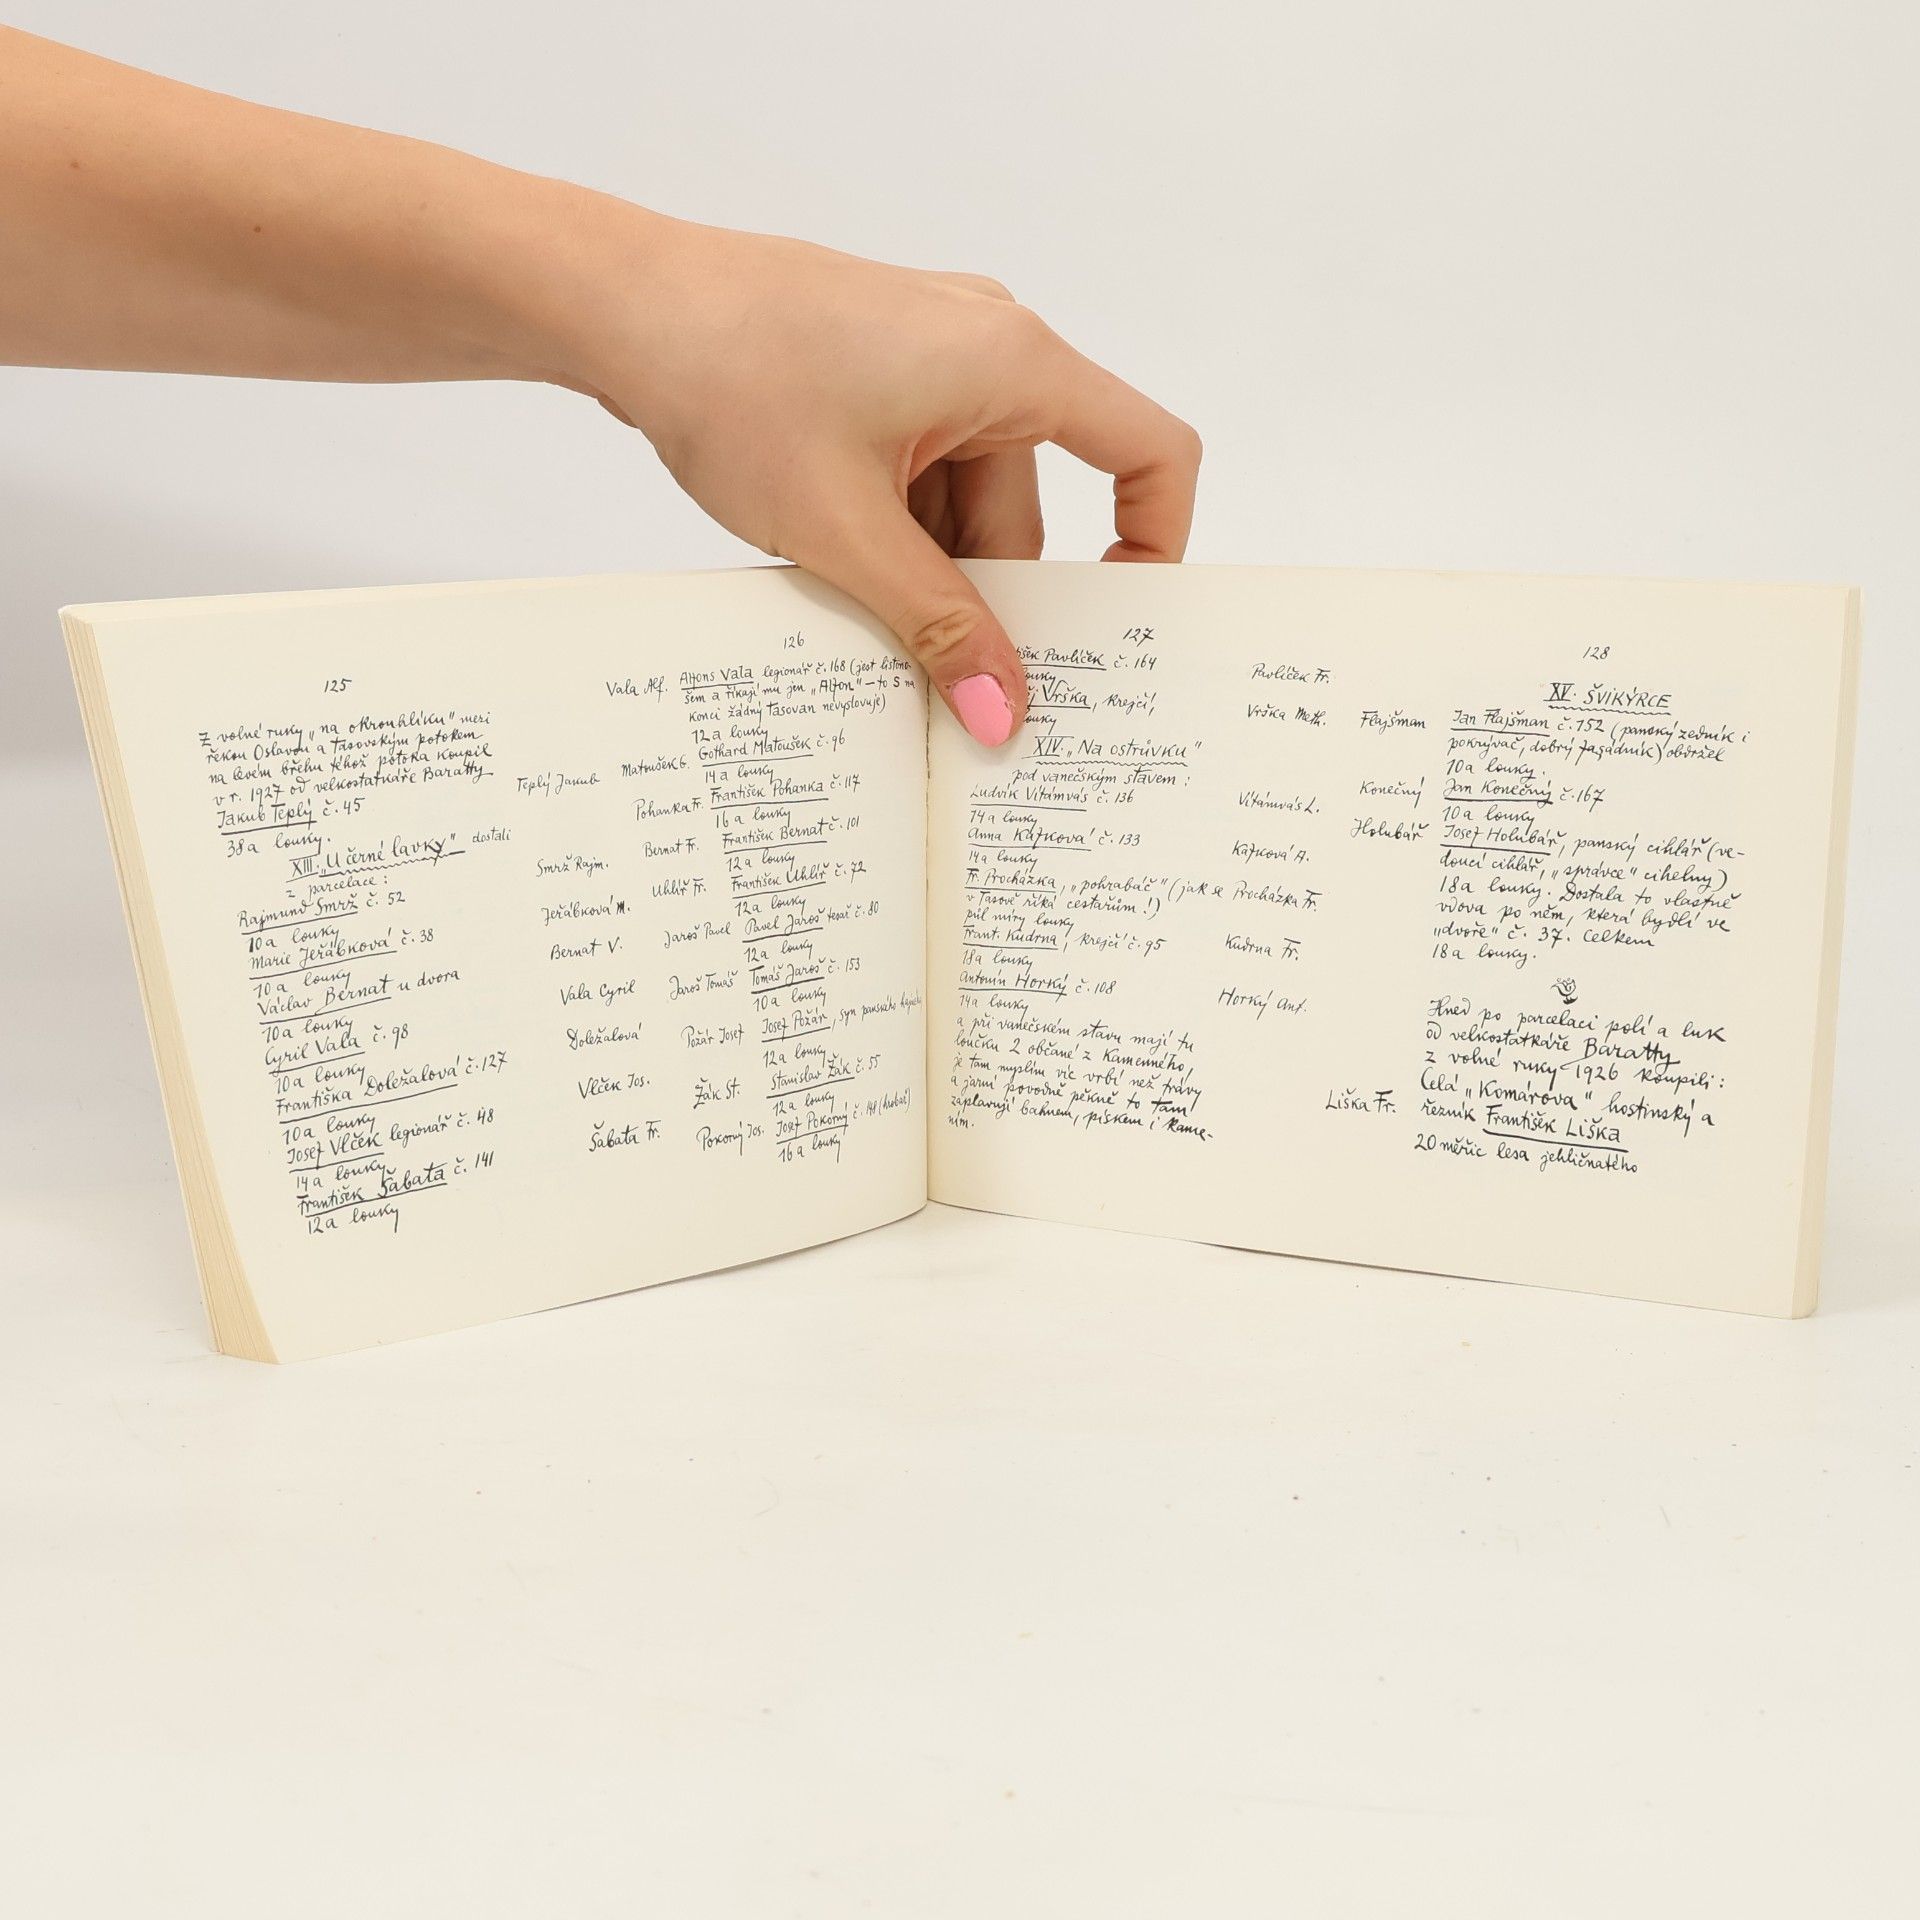 125
z volné ruky „na okrouhlíku" mezi
řekou Oslavou a tasovským potokem
na levém břehu téhož potoka koupil
v r. 1927 od velkostatkáře Baratty
Teplý Jakub
Jakub Teplý č. 45
38a louky.
XIII. „U černé lavky" dostali
z parcelace:
Smrž Rajm.
Rajmund Smrž č. 52
10a louky
Jeřábková M.
Marie Jeřábková č. 38
10a louky
Bernat V.
Václav Bernat u dvora
10a louky
Vala Cyril
Cyril Vala č. 98
10a louky
Doležalová
Františka Doležalová č. 127
10a louky
Vlček Jos.
Josef Vlček legionář č. 48
14a louky
Šabata Fr.
František Šabata č. 141
12a louky
126
Vala Alf. Alfons Vala legionář č. 168 (jest listono-
šem a říkají mu jen „Alfon" – to S na
konci žádný Tasovan nevyslovuje)
12a louky
Matoušek G. Gothard Matoušek č. 96
14a louky
Pohanka Fr. František Pohanka č. 117
16a louky
Bernat Fr. František Bernat č. 101
12a louky
Uhlíř Fr. František Uhlíř č. 72
12a louky
Jaroš Pavel Pavel Jaroš tesař č. 80
12a louky
Jaroš Tomáš Tomáš Jaroš č. 153
10a louky
Požár Josef Josef Požár, syn panského
12a louky
Žák St. Stanislav Žák č. 55
12a louky
Pokorný Jos. Josef Pokorný č. 148 (hrobař)
16a louky
127
Pavlíček č. 164 Pavlíček Fr.
louky
Vrška, krejčí, Vrška Meth.
louky
XIV. „Na ostrůvku"
pod vanečským stavem:
Ludvík Vitámvás č. 136 Vitámvás L.
14a louky
Anna Kafková č. 133 Kafková A.
14a louky
Fr. Procházka, „pohrabáč" (jak se Procházka Fr.
v Tasově říká cestařům!)
půl míry louky
Frant. Kudrna, krejčí č. 95 Kudrna Fr.
18a louky
Antonín Horký č. 108 Horký Ant.
14a louky
a při vanečském stavu mají tu
loučku 2 občané z Kamenného,
je tam myslím víc vrbí než trávy
a jarní povodně pěkně to tam
zaplavují bahnem, pískem i kame-
ním.
128
XV. ŠVIKÝRCE
Flajšman Jan Flajšman č. 152 (panský zedník i
pokrývač, dobrý fasádník) obdržel
10a louky.
Konečný Jan Konečný č. 167
10a louky
Holubář Josef Holubář, panský cihlář (ve-
doucí cihlář, „správce" cihelny)
18a louky. Dostala to vlastně
vdova po něm, která bydlí ve
„dvoře" č. 37. Celkem
18a louky.
Hned po parcelaci polí a luk
od velkostatkáře Baratty
z volné ruky 1926 koupili:
Celá „Komárova" hostinský a
Liška Fr. řezník František Liška
20 měřic lesa jehličnatého